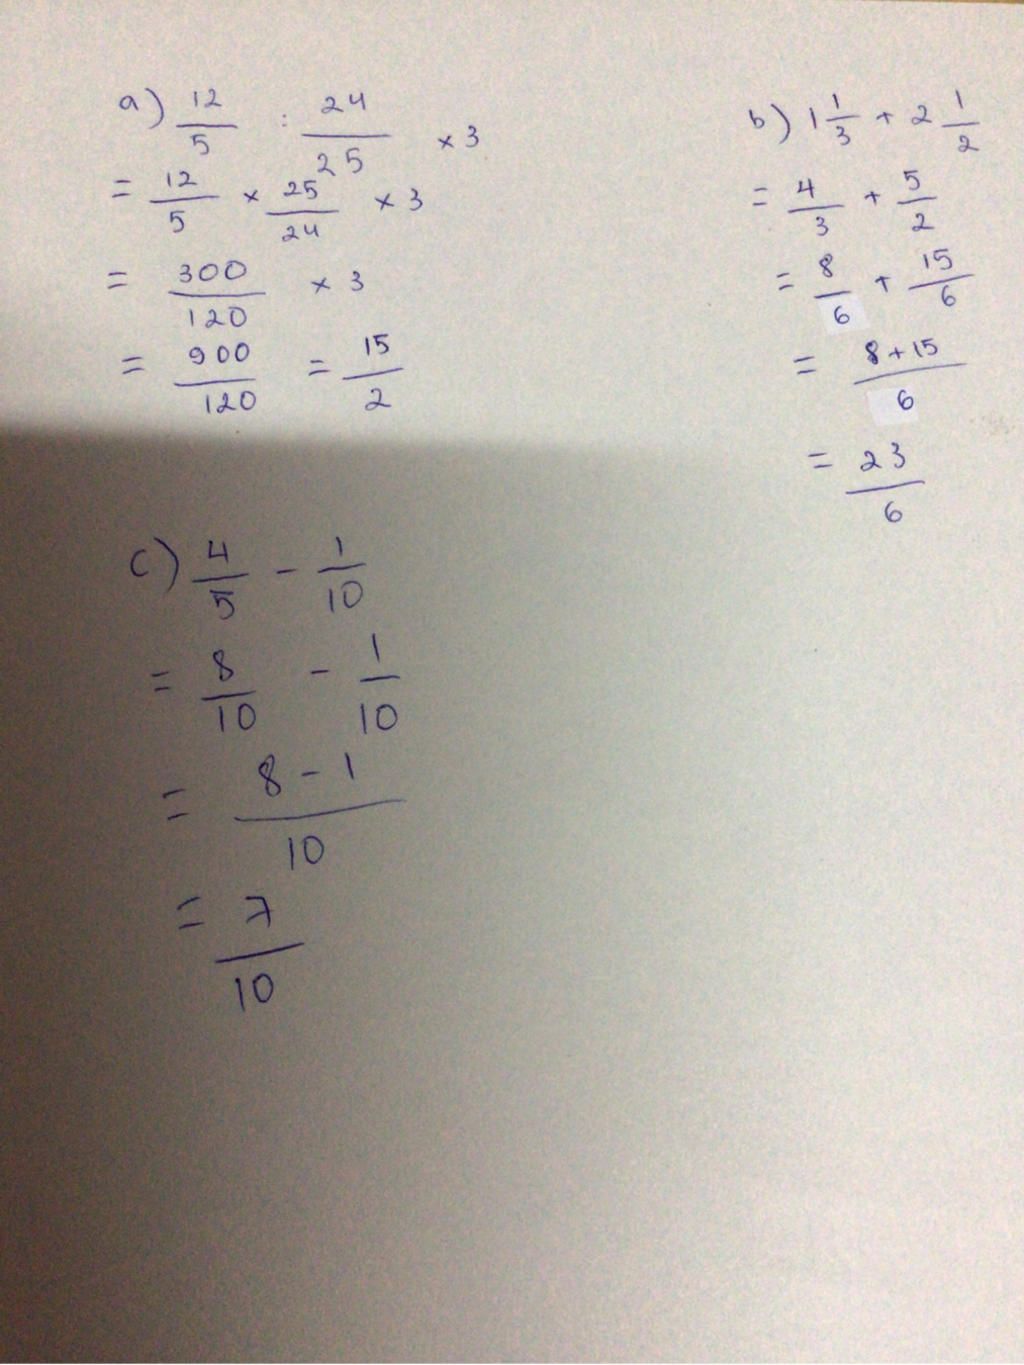 a) 12/5 : 24/25 × 3
= 12/5 × 25/24 × 3
= 300/120 × 3
= 900/120 = 15/2
b) 1 1/3 + 2 1/2
= 4/3 + 5/2
= 8/6 + 15/6
= 8+15/6
= 23/6
c) 4/5 - 1/10
= 8/10 - 1/10
= 8-1/10
= 7/10